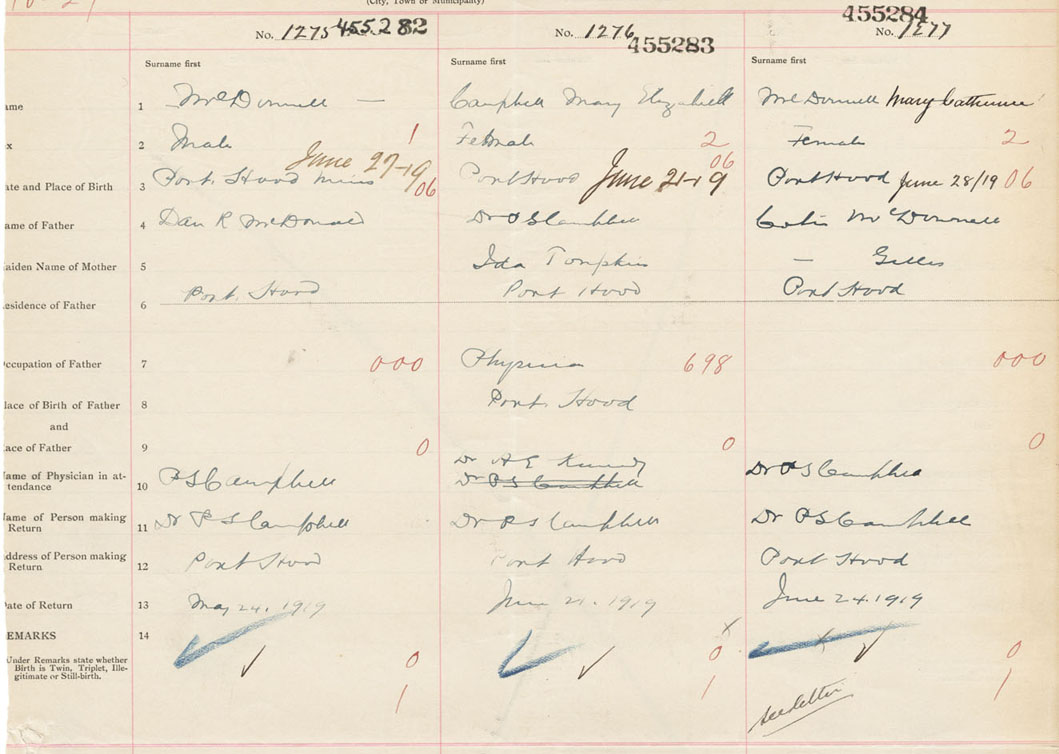 (City, Town or Municipality)
No. 1275 455282 No. 1276 455283 No. 1277 455284
Surname first Surname first Surname first
ame 1 McDonnell — Campbell Mary Elizabeth McDonnell Mary Catherine
x 2 Male 1 Female 2 Female 2
ate and Place of Birth 3 Port Hood mines June 27-19 06 Port Hood June 21-19 06 Port Hood June 28/19 06
ame of Father 4 Dan R McDonald Dr P S Campbell Colin McDonnell
aiden Name of Mother 5 Ida Tompkins — Gillis
esidence of Father 6 Port Hood Port Hood Port Hood
ccupation of Father 7 000 Physician 698 000
lace of Birth of Father 8 Port Hood
and
ace of Father 9 0 0 0
Dr A E Kennedy
ame of Physician in at-
tendance 10 P S Campbell Dr P S Campbell Dr P S Campbell
ame of Person making
Return 11 Dr P S Campbell Dr P S Campbell Dr P S Campbell
ddress of Person making
Return 12 Port Hood Port Hood Port Hood
ate of Return 13 May 24. 1919 June 21. 1919 June 24. 1919
EMARKS 14
Under Remarks state whether
Birth is Twin, Triplet, Ille-
gitimate or Still-birth.
0 0 0
1 1 1
see letter